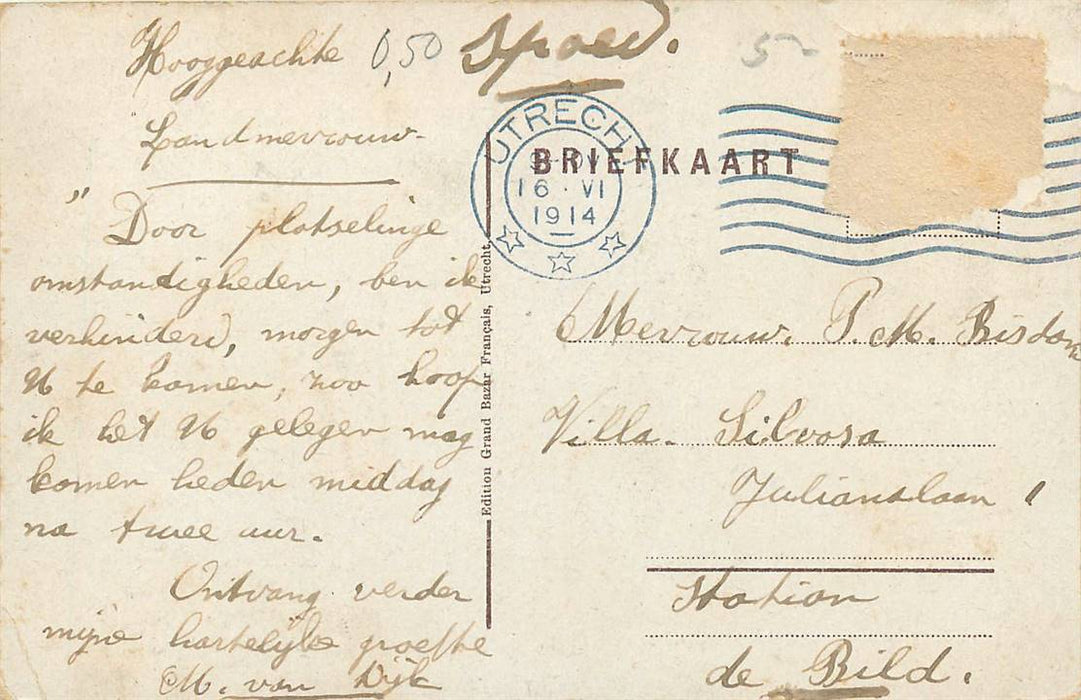 Hooggeachte 0,50 Spoed.
5-
Landmevrouw-
" Door plotselinge
omstandigheden, ben ik
verhinderd, morgen tot
U te komen, zoo hoop
ik het U gelegen mag
komen heden middag
na twee uur.
Ontvang verder
mijne hartelijke groette
M. van Dijk
Edition Grand Bazar Français, Utrecht.
UTRECHT
16 · VI
1914
BRIEFKAART
Mevrouw. P. M. Bisdom
Villa. Silvosa
Julianalaan 1
Station
de Bild.